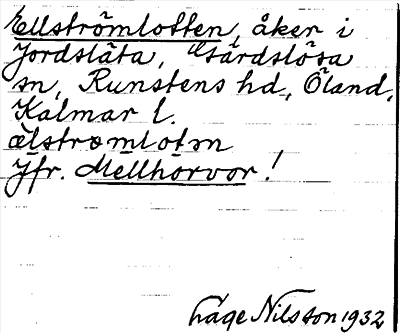 Ellströmlotten, åker i
Jordsläta, Gärdslösa
sn, Runstens hd, Öland,
Kalmar l.
ælstrømlotn
Jfr. Mellhorvor!
Låge Nilsson 1932